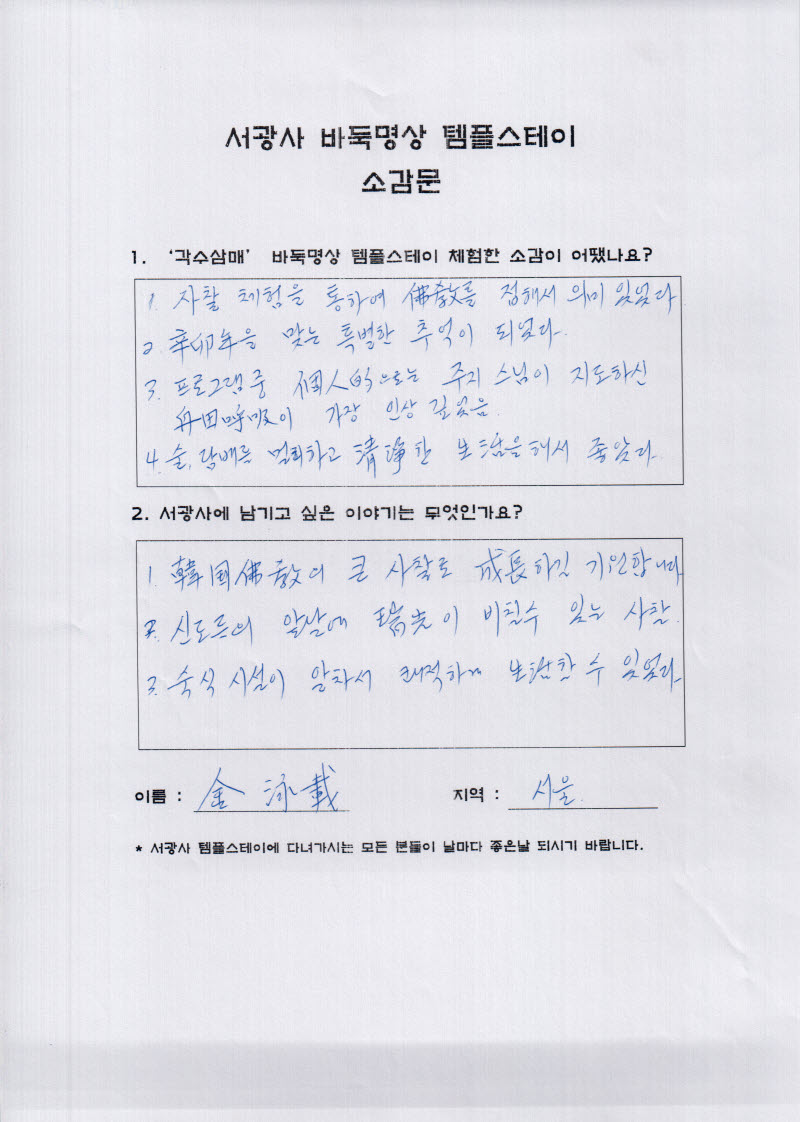 서광사 바둑명상 템플스테이
소감문
1. ‘각수삼매’ 바둑명상 템플스테이 체험한 소감이 어땠나요?
1. 자찰 체험을 통하여 佛敎를 접해서 의미 있었다
2. 辛卯年을 맞는 특별한 추억이 되었다.
3. 프로그램중 個人的으로는 주지 스님이 지도하신
丹田呼吸이 가장 인상 깊었음.
4. 술, 담배를 멀리하고 清淨한 生活을 해서 좋았다.
2. 서광사에 남기고 싶은 이야기는 무엇인가요?
1. 韓国佛敎의 큰 사찰로 成長하길 기원합니다
2. 신도들의 앞날에 瑞光이 비칠수 있는 사찰.
3. 숙식 시설이 알차서 쾌적하게 生活할 수 있었다.
이름 : 金 泳 載
지역 : 서울.
* 서광사 템플스테이에 다녀가시는 모든 분들이 날마다 좋은날 되시기 바랍니다.